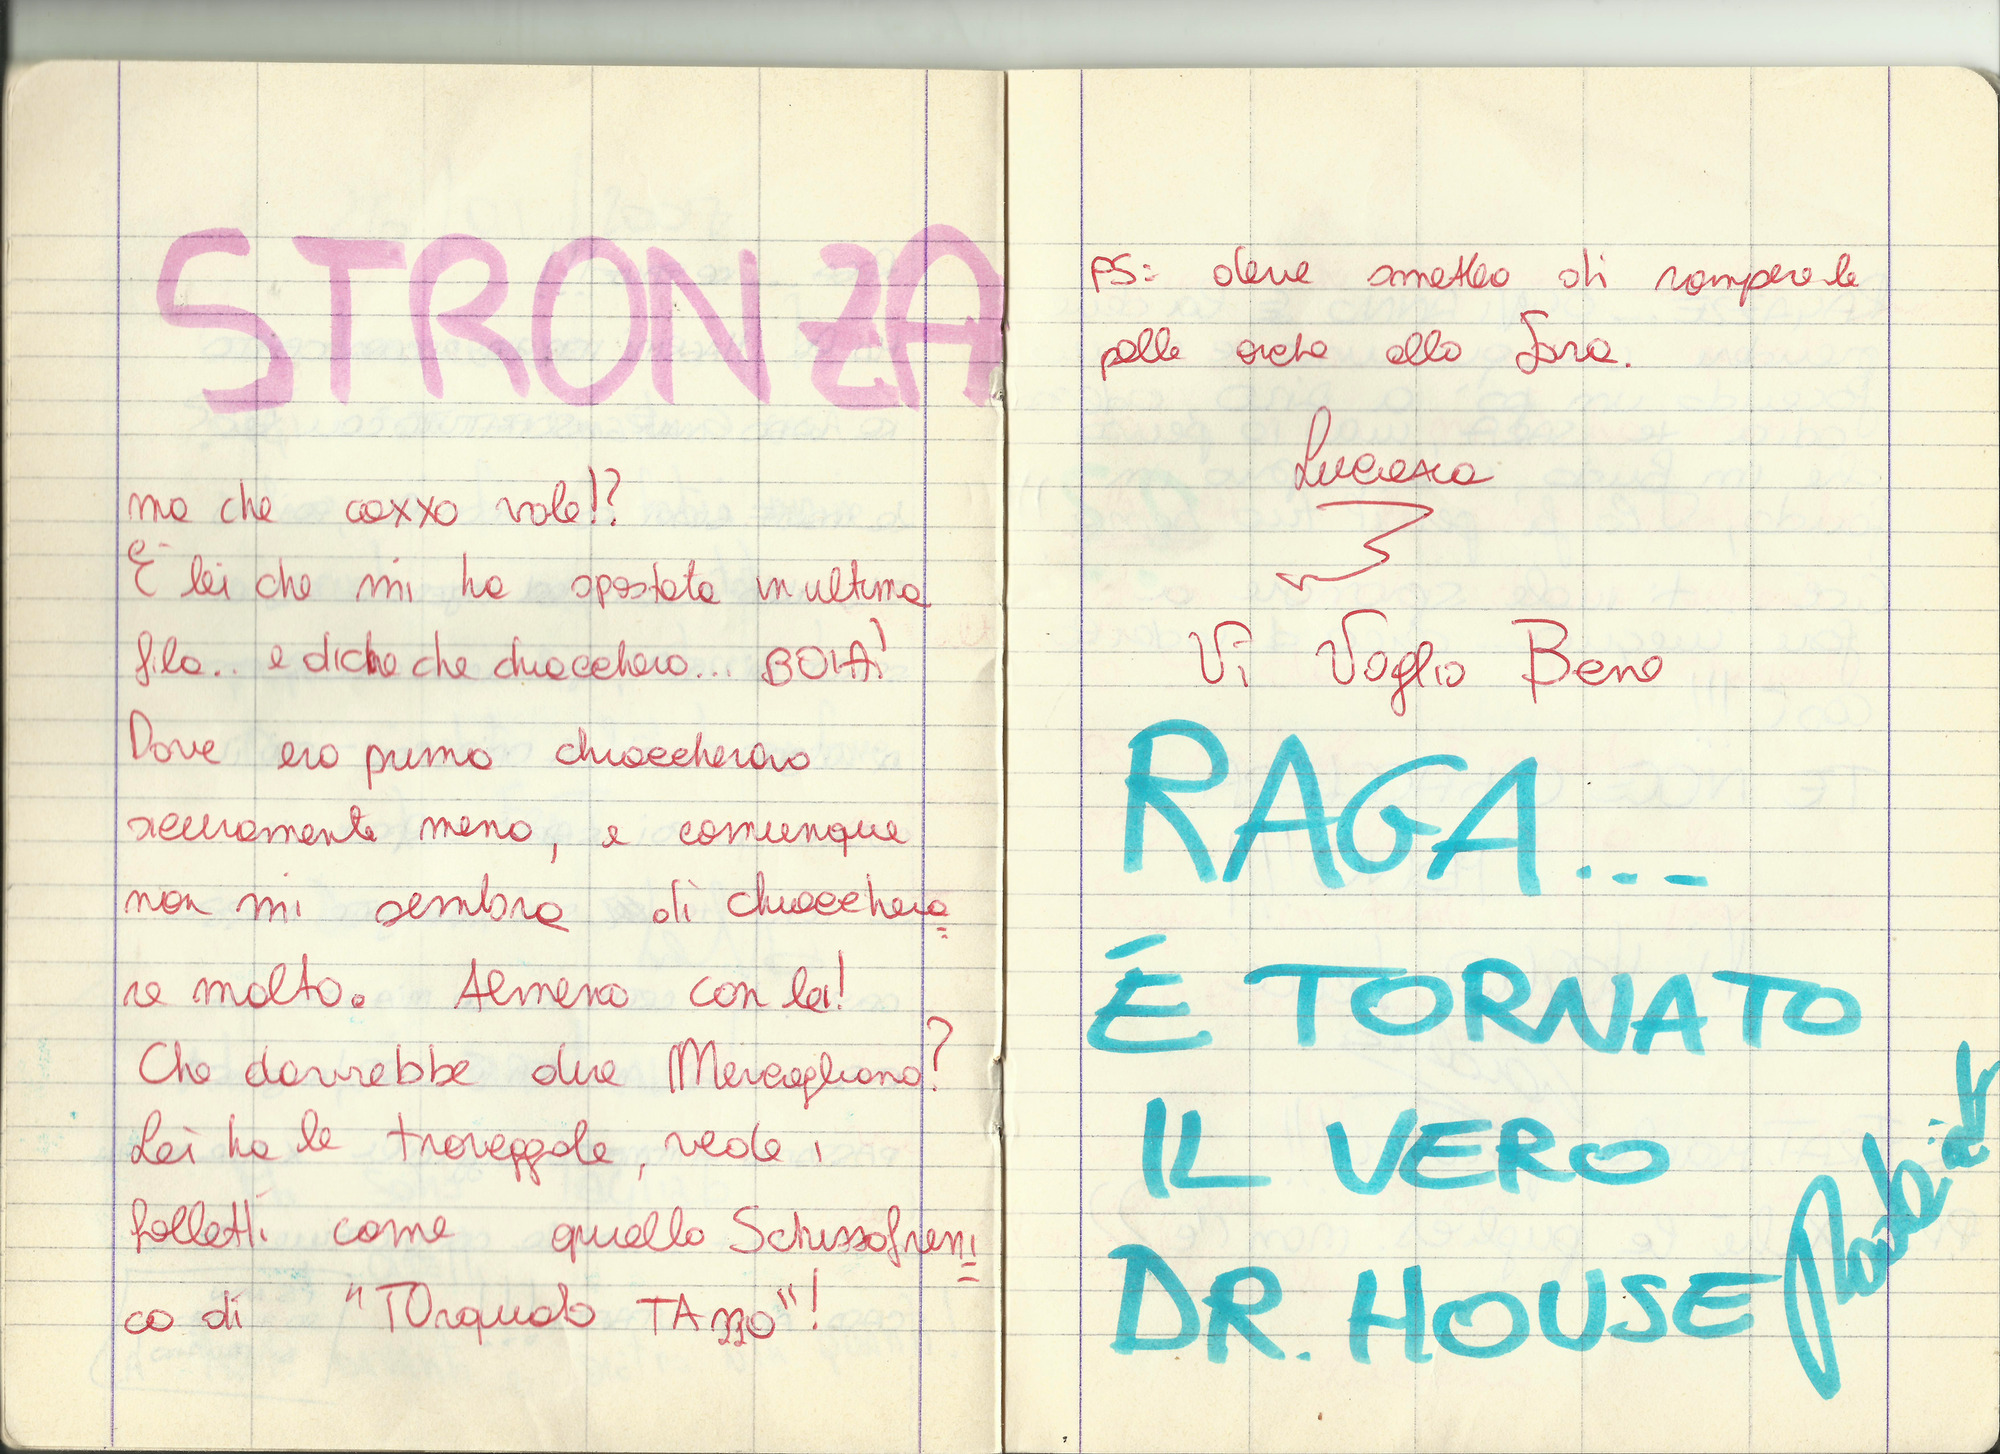 STRONZA
ma che caxxo vole!?
È lei che mi ha spostata in ultima
fila.. e dice che chiacchero... BOIA!
Dove ero prima chiaccheravo
sicuramente meno, e comunque
non mi sembra di chiacchera=
re molto. Almeno con lei!
Che dovrebbe dire Mercogliano?
Lei ha le traveggole, vede i
folletti come quello Schizzofreni=
co di "TOrquato TAsso"!
PS: deve smettere di rompere le
palle anche alla Sara.
Lucrezia
Vi Voglio Bene
RAGA...
È TORNATO
IL VERO
DR. HOUSE